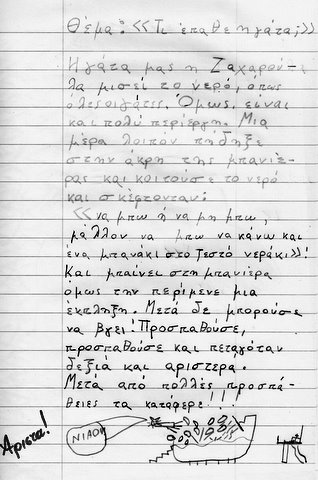 Θέμα: <<Τι έπαθε η γάτα;>>
Η γάτα μας η Ζαχαρού-
λα μισεί το νερό, οπως
όλες οι γάτες. Όμως, είναι
και πολύ περίεργη. Μια
μέρα λοιπόν πήδηξε
στην άκρη της μπανιέ-
ρας και κοιτούσε το νερό
και σκέφτονταν:
<<να μπω ή να μη μπω,
μάλλον να μπω να κάνω και
ένα μπανάκι στο ζεστό νεράκι>>!
Και μπαίνει στη μπανιέρα
όμως την περίμενε μια
έκπληξη. Μετά δε μπορούσε
να βγει! Προσπαθούσε,
προσπαθούσε και πεταγόταν
δεξιά και αριστερα.
Μετά από πολλές προσπά-
θειες τα κατάφερε!!!
Άριστα!
ΝΙΑΟΥ